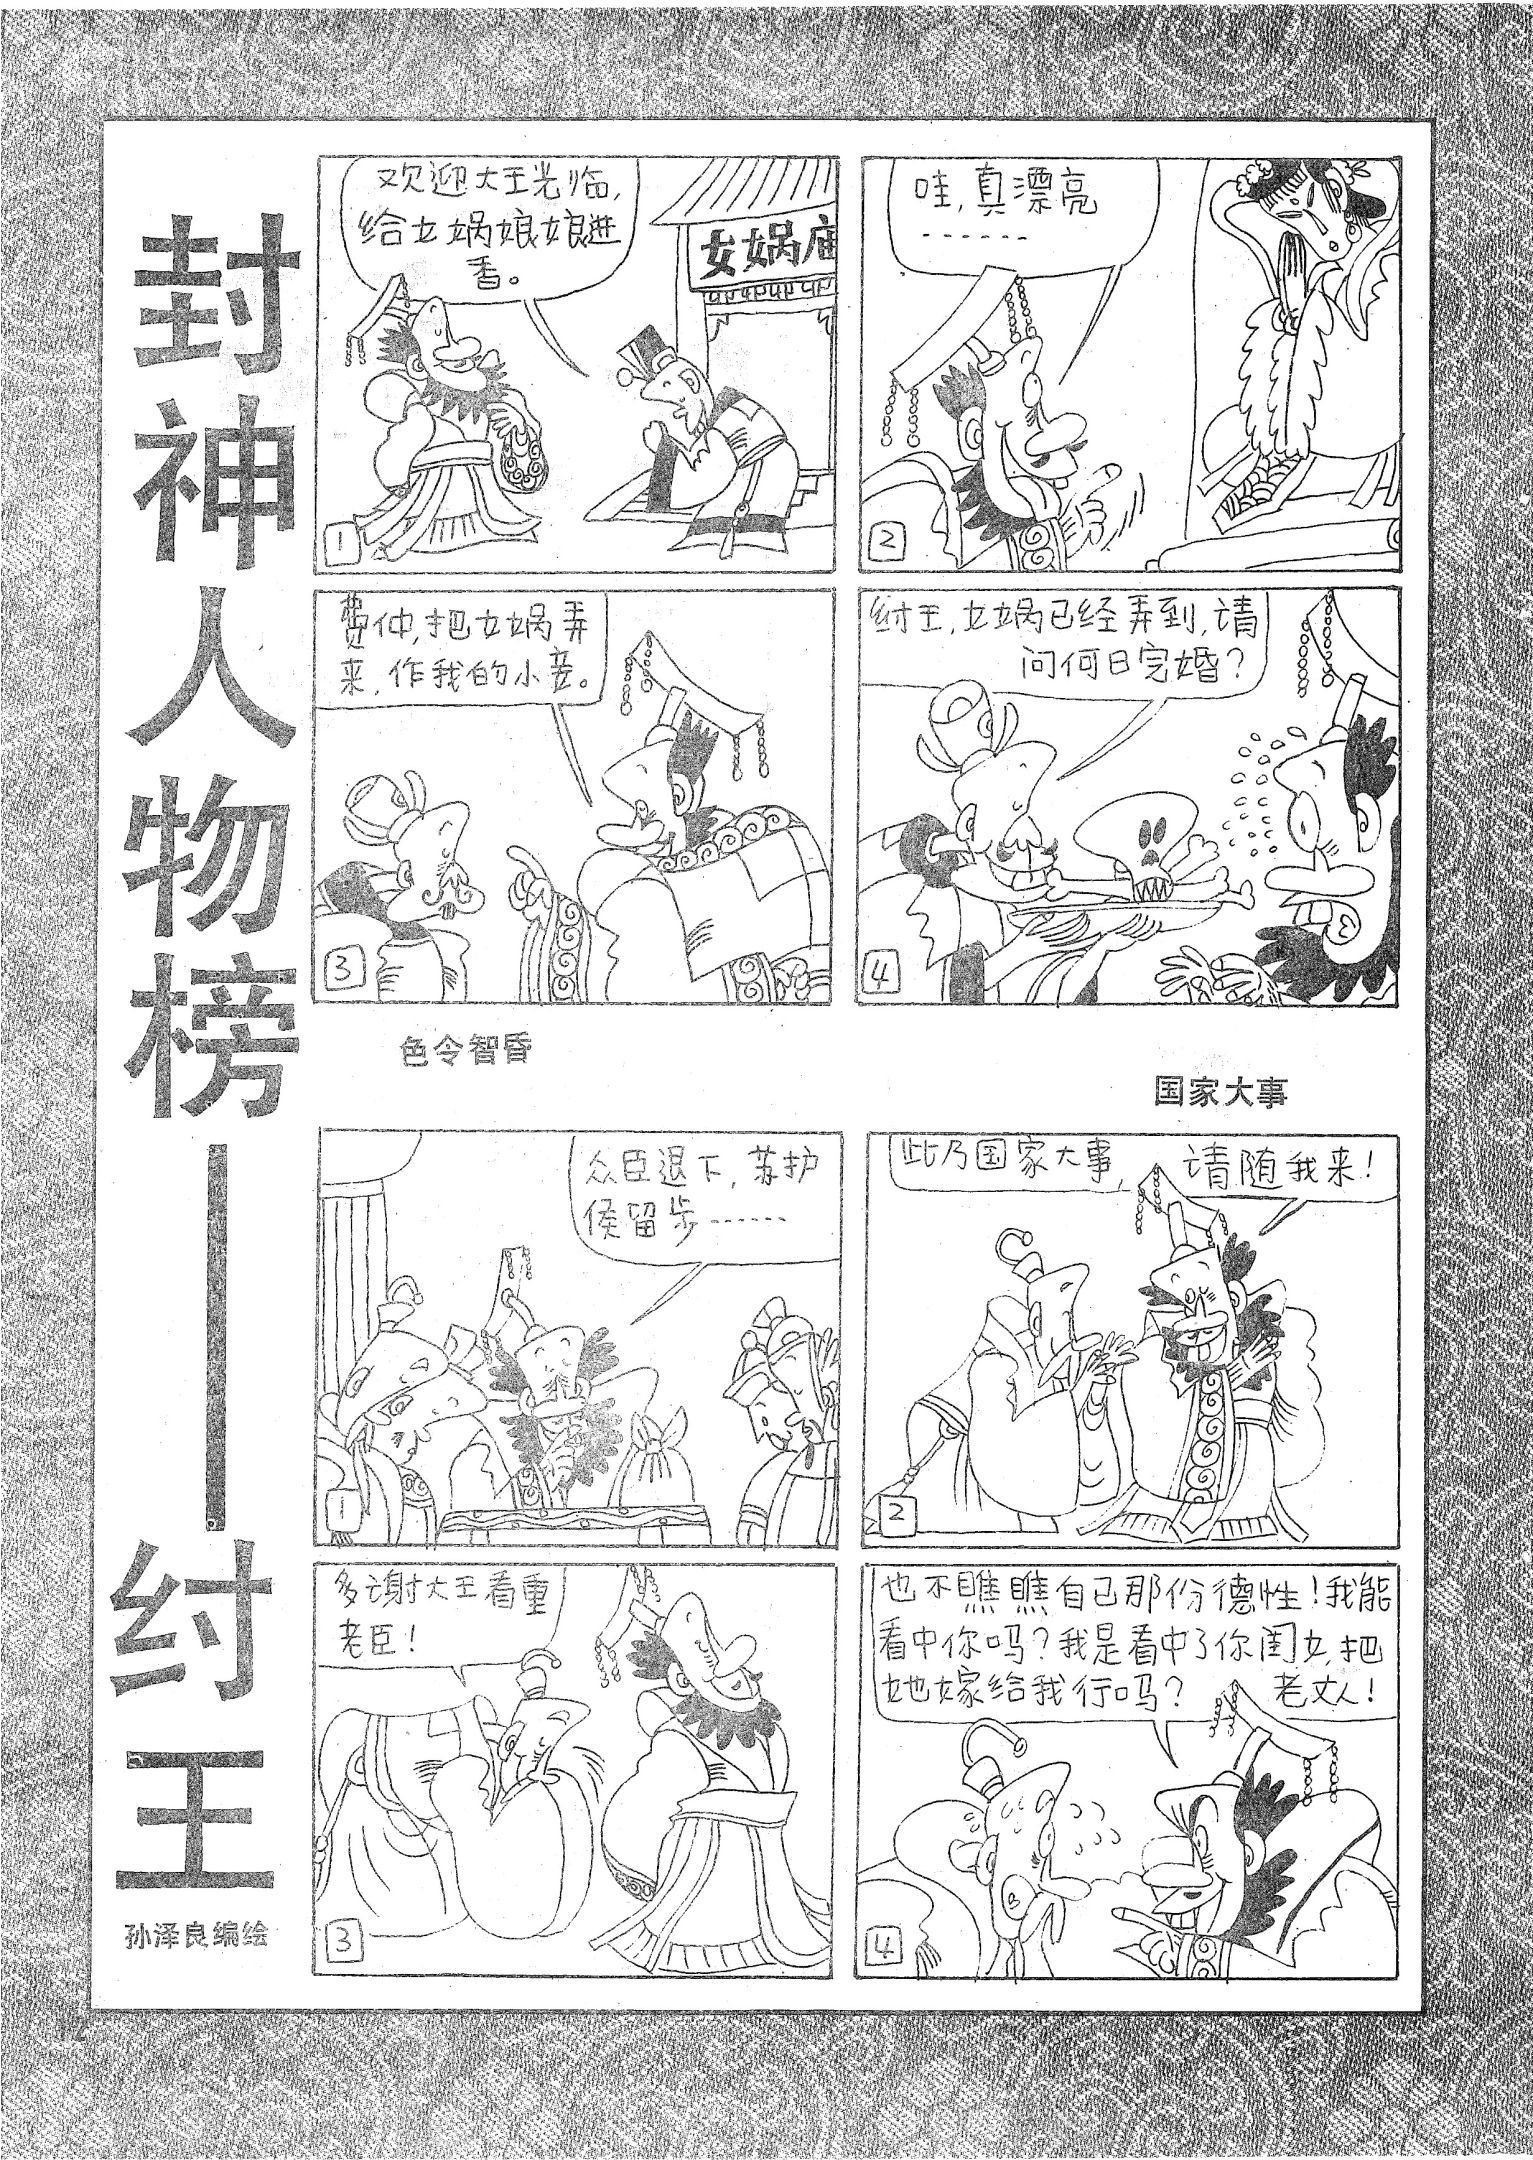 封神人物榜——纣王
孙泽良编绘
欢迎大王光临,
给女娲娘娘进
香。
女娲庙
1
哇,真漂亮
……
2
费仲,把女娲弄
来,作我的小妾。
3
纣王,女娲已经弄到,请
问何日完婚?
4
色令智昏
国家大事
众臣退下,苏护
侯留步……
1
此乃国家大事,请随我来!
2
多谢大王看重
老臣!
3
也不瞧瞧自己那份德性!我能
看中你吗?我是看中了你闺女,把
她嫁给我行吗?老丈人!
4